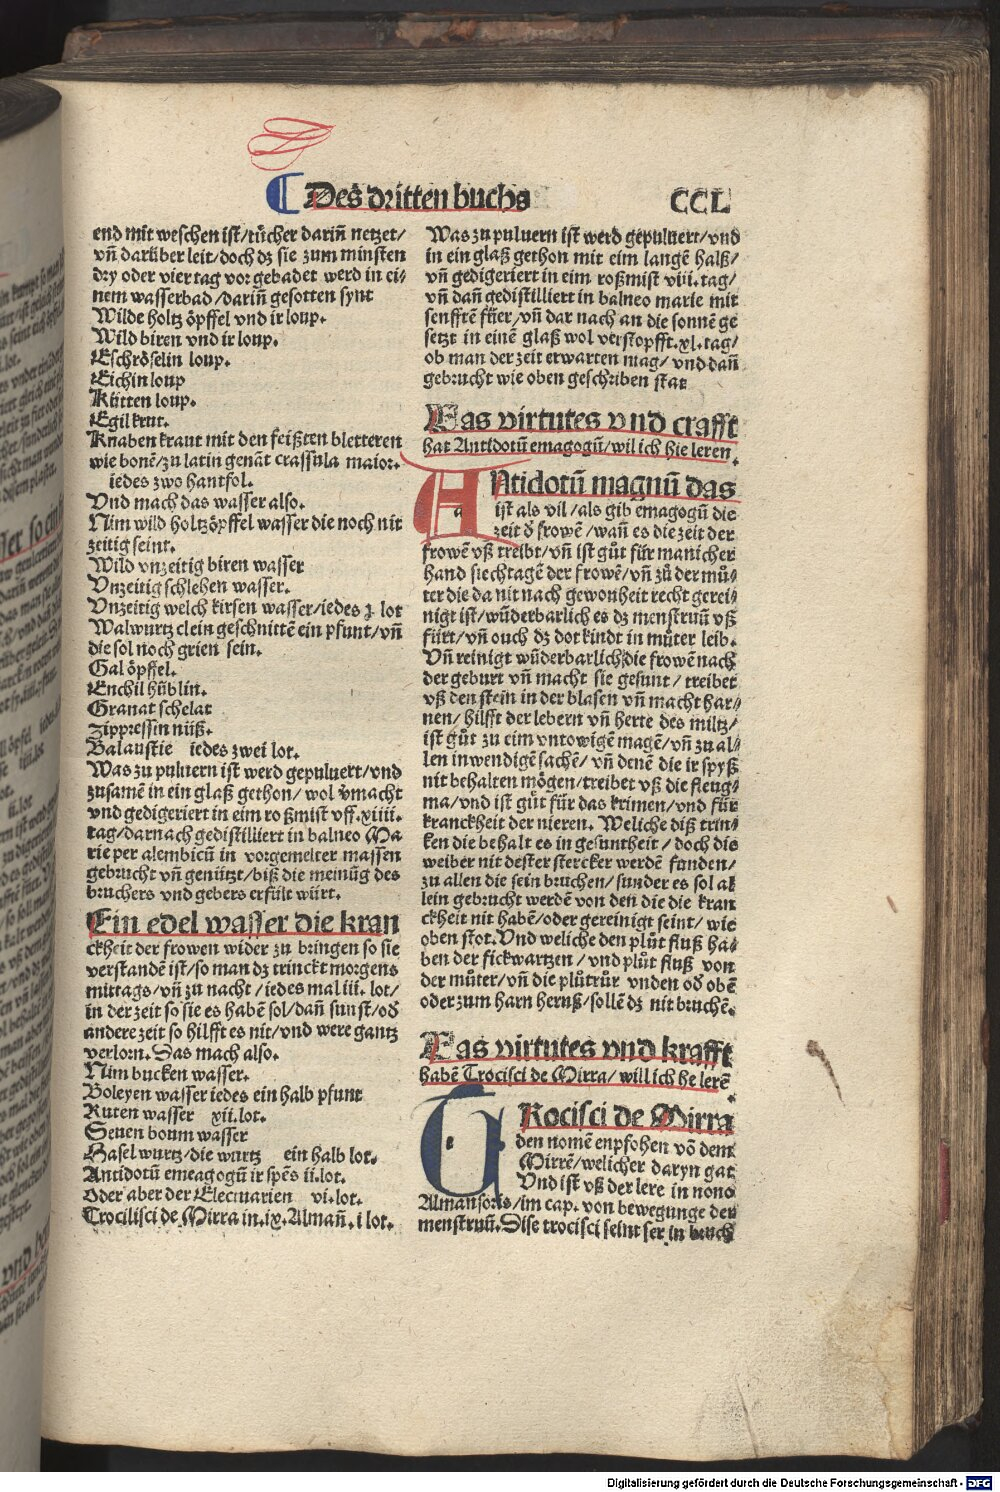 Des dritten buchs
CCL
end mit weschen ist/tücher dariñ netzet/
vñ darüber leit/doch dz sie zum minsten
dry oder vier tag vor gebadet werd in ei-
nem wasserbad/dariñ gesotten synt
Wilde holtz öpffel vnd ir loup.
Wild biren vnd ir loup.
Eschröselin loup.
Eichin loup
Kütten loup.
Egil krut.
Knaben kraut mit den feißten bletteren
wie bonē/zu latin genāt crassula maior.
iedes zwo hantfol.
Vnd mach das wasser also.
Nim wild holtzöpffel wasser die noch nit
zeitig seint.
Wild vnzeitig biren wasser
Vnzeitig schlehen wasser.
Vnzeitig welch kirsen wasser/iedes ʒ lot
Walwurtz clein geschnittē ein pfunt/vñ
die sol noch grien sein.
Gal öpffel.
Enchil hüblin.
Granat schelat
Zippressin nüß.
Balaustie iedes zwei lot.
Was zu puluern ist werd gepuluert/vnd
zusamē in ein glaß gethon/wol v̄macht
vnd gedigeriert in eim roßmist vff.xiiii.
tag/darnach gedistilliert in balneo Ma
rie per alembicū in vorgemelter massen
gebrucht vñ genützt/biß die meinūg des
bruchers vnd gebers erfült würt.
Ein edel wasser die kran
ckheit der frowen wider zu bringen so sie
verstandē ist/so man dz trinckt morgens
mittags/vñ zu nacht/iedes mal iii. lot/
in der zeit so sie es habē sol/dañ sunst/oď
andere zeit so hilfft es nit/vnd were gantz
verlorn. Das mach also.
Nim bucken wasser.
Boleyen wasser iedes ein halb pfunt
Ruten wasser xii.lot.
Seuen boum wasser
Hasel wurtz/die wurtz ein halb lot.
Antidotū emeagogū ir spēs ii.lot.
Oder aber der Electuarien vi.lot.
Trocilisci de Mirra in.ix.Almañ.i lot.
Was zu puluern ist werd gepuluert/vnd
in ein glaß gethon mit eim langē halß/
vñ gedigeriert in eim roßmist viii.tag/
vñ dañ gedistilliert in balneo marie mit
senfftē füer/vñ dar nach an die sonnē ge
setzt in einē glaß wol verstopfft.xl.tag/
ob man der zeit erwarten mag/vnd dañ
gebrucht wie oben geschriben stat
Was virtutes vnd crafft
hat Antidotū emagogū/wil ich hie leren.
ANtidotū magnū das
ist als vil/als gib emagogū die
zeit ď frowē/wañ es die zeit der
frowē vß treibt/vñ ist gůt für manicher
hand siechtagē der frowē/vñ zů der mů-
ter die da nit nach gewonheit recht gerei-
nigt ist/wūderbarlich es dz menstruū vß
fürt/vñ ouch dz dot kindt in můter leib.
Vñ reinigt wūderbarlich die frowē nach
der geburt vñ macht sie gesunt/treibet
vß den stein in der blasen vñ macht har-
nen/hilfft der lebern vñ herte des miltz/
ist gůt zu eim vntowigē magē/vñ zu al-
len inwendigē sachē/vñ denē die ir spyß
nit behalten mögen/treibet vß die fleug-
ma/vnd ist gůt für das krimen/vnd für
kranckheit der nieren. Weliche diß trin-
ken die behalt es in gesuntheit/doch die
weiber nit dester stercker werdē fanden/
zu allen die sein bruchen/sunder es sol al
lein gebrucht werdē von den die die kran
ckheit nit habē/oder gereinigt seint/wie
oben stot. Vnd weliche den plůt fluß ha-
ben der fickwartzen/vnd plůt fluß von
der můter/vñ die plůtrür vnden oď obē
oder zum harn heruß/sollē dz nit bruchē.
Was virtutes vnd krafft
habē Trocisci de Mirra/will ich he lerē
TRocisci de Mirra
den nomē enpfohen vō dem
Mirrē/welicher daryn gat
Vnd ist vß der lere in nono
Almansoris/im cap. von bewegunge der
menstruū. Dise trocisci seint ser in bruch
Digitalisierung gefördert durch die Deutsche Forschungsgemeinschaft - DFG